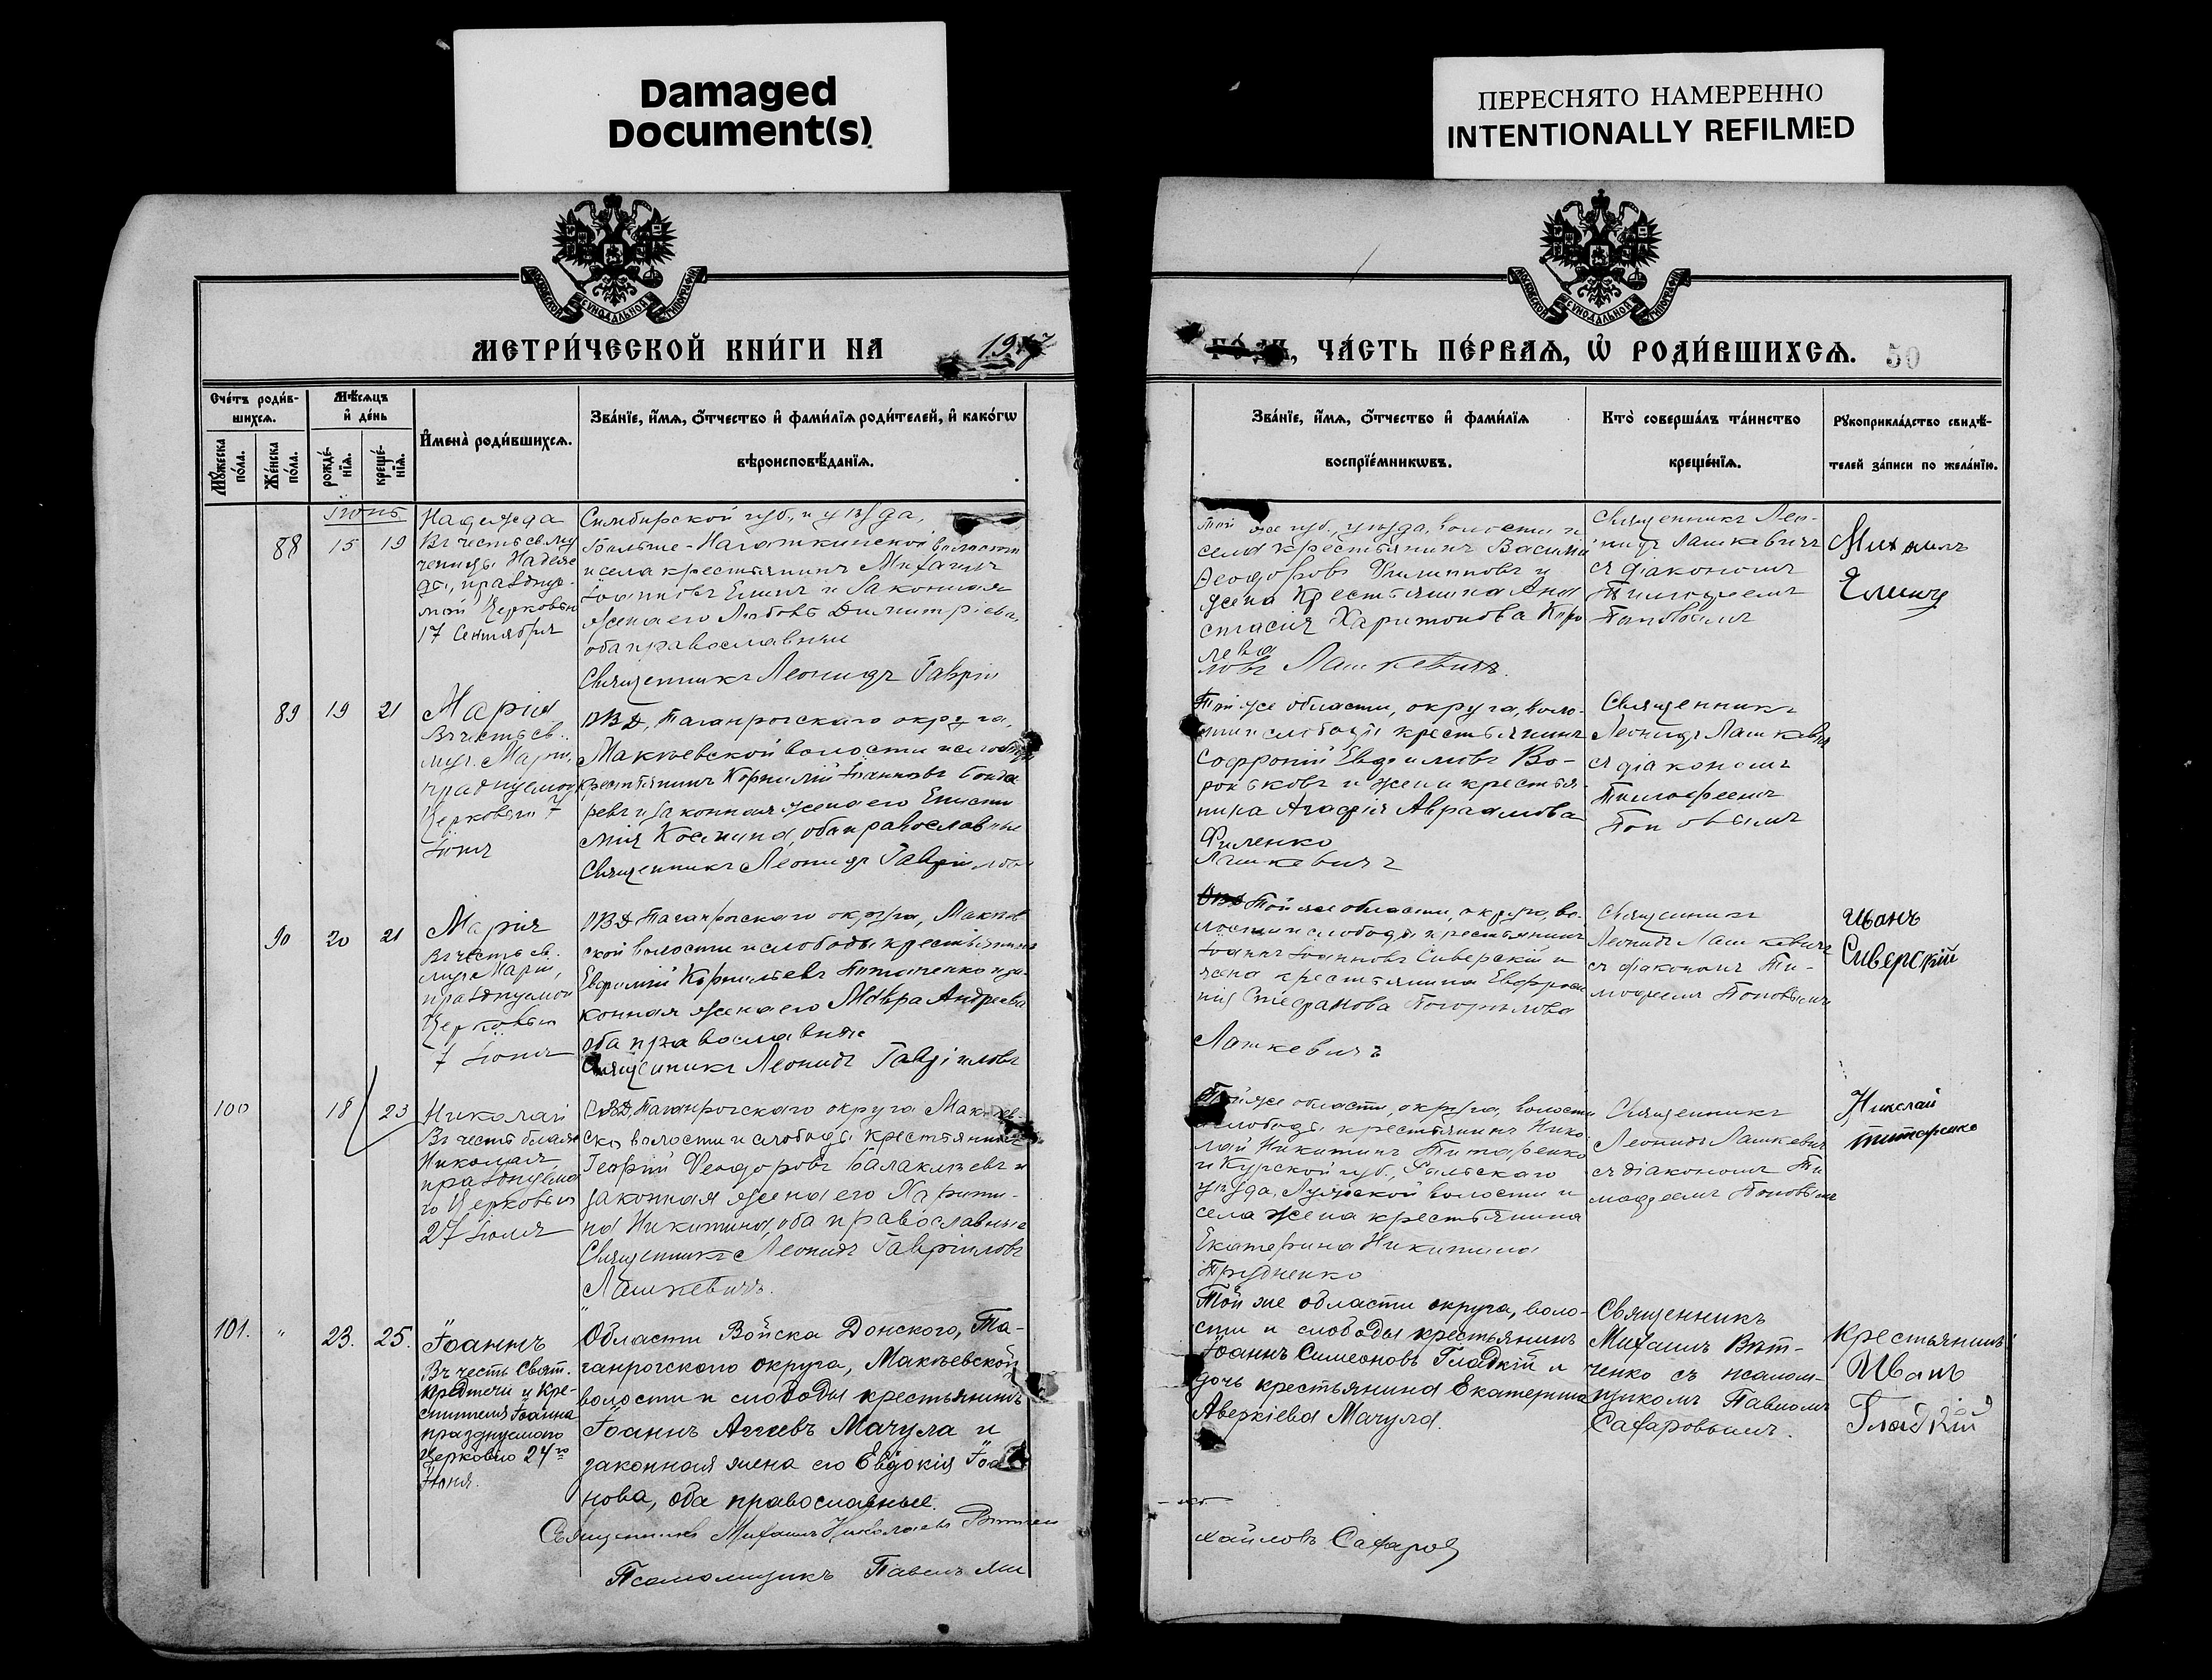 Damaged
Document(s)
ПЕРЕСНЯТО НАМЕРЕННО
INTENTIONALLY REFILMED
МЕТРИ́ЧЕСКОЙ КНИ́ГИ НА 19
ЧА́СТЬ ПЕ́РВАѦ, Ѿ РОДИ́ВШИХСѦ. 50
Сче́тъ роди́в-
шихсѧ.
Мꙋ́жеска по́ла.
Же́нска по́ла.
Мѣ́сѧцъ
и҆ де́нь
рожде́-
нїѧ.
креще́-
нїѧ.
И҆мена̀ роди́вшихсѧ.
Зва́нїе, и҆́мѧ, ѻ҆́тчество и҆ фами́лїѧ роди́телей, и҆ како́гѡ
вѣроисповѣ́данїѧ.
Зва́нїе, и҆́мѧ, ѻ҆́тчество и҆ фами́лїѧ
воспрїе́мникѡвъ.
Кто̀ соверша́лъ та́инство
креще́нїѧ.
Рꙋкоприкла́дство свидѣ́-
телей за́писи по жела́нїю.
Іюнь
88 15 19
Надежда
Въ честь св. му
ченицы Надеж
ды, праздну-
мой Церковью
17 Сентября
Симбирской губ., и уѣзда,
Больше-Нагаткинской волости
и села крестьянинъ Михаилъ
Іоанновъ Елинъ и законная
жена его Любовь Димитріева,
оба православные
Священникъ Леонидъ Гаврiи
Той же губ., уѣзда, волости и
села крестьянинъ Василій
Ѳеодоровъ Филипповъ и
жена крестьянина Ана
стасія Харитонова Коро
лева
ловъ Лашкевичъ.
Священникъ Лео-
нидъ Лашкевичъ
съ діакономъ
Тимофеемъ
Поповымъ
Михаилъ
Елинъ
89 19 21
Марія
Въ честь св.
муч. Маріи,
празднуемой
Церковью 7
Іюня
ОВД, Таганрогскаго округа,
Макѣевской волости и слободы
крестьянинъ Корнилій Іоанновъ Бонда
ревъ и законная жена его Еписти
мія Космина, оба православные
Священникъ Леонидъ Гавріиловъ
Той же области, округа, воло-
сти и слободы крестьянинъ
Софроній Евфимовъ Во-
роньковъ и жена крестья
нина Агафія Авраамова
Филенко
Лашкевичъ
Священникъ
Леонидъ Лашкевичъ
съ діакономъ
Тимофеемъ
Поповымъ
90 20 21
Марія
Въ честь св.
муч. Маріи,
празднуемой
Церковью
7 Іюня
ОВД Таганрогскаго округа, Макѣев
ской волости и слободы крестьянинъ
Евфимій Корнильевъ и за-
конная жена его Мавра Андреева
оба православные
Священникъ Леонидъ Гавріиловъ
Той же области, округа, во-
лости и слободы крестьянинъ
Іоаннъ Іоанновъ Сиверскій и
жена крестьянина Евфроси
нія Стефанова Погорѣлова
Лашкевичъ
Священникъ
Леонидъ Лашкевичъ
съ діакономъ Ти-
мофеемъ Поповымъ
Иванъ
Сиверскій
100 18 23
Николай
Въ честь блаж.
Николая
празднуемаго
Церковью
27 Іюля
ОВД, Таганрогскаго округа Макѣев
ско волости и слободы крестьянинъ
Георгій Ѳеодоровъ Балаклѣевъ и
законная жена его Харити-
на Никитина, оба православные
Священникъ Леонидъ Гавріиловъ
Лашкевичъ.
Той же области, округа, волости
слободы крестьянинъ Нико
лай Никитинъ Титаренко
и Курской губ.,
уѣзда, волости и
села жена крестьянина
Екатерина Никитина
Трудненко
Священникъ
Леонидъ Лашкевичъ
съ діакономъ Ти
мофеемъ Поповымъ
Николай
Титаренко
101. " 23. 25.
Іоаннъ
Въ честь Свят.
Предтечи и Кре-
стителя Іоанна
празднуемаго
Церковью 24го
Іюня.
Области Войска Донского, Та-
ганрогскаго округа, Макѣевской
волости и слободы крестьянинъ
Іоаннъ Аггеевъ Мачула и
законная жена его Евдокія Іоа
нова, оба православные.
Священникъ Михаилъ Николаевъ
Псаломщикъ Павелъ Ми
Той же области округа, воло-
сти и слободы крестьянинъ
Іоаннъ Симеоновъ Гладкій и
дочь крестьянина Екатерина
Аверкіева Мачула.
хайловъ Сафаровъ
Священникъ
Михаилъ Вѣт-
ченко съ псалом-
щикомъ Павломъ
Сафаровымъ.
Крестьянинъ
Иванъ
Гладкій